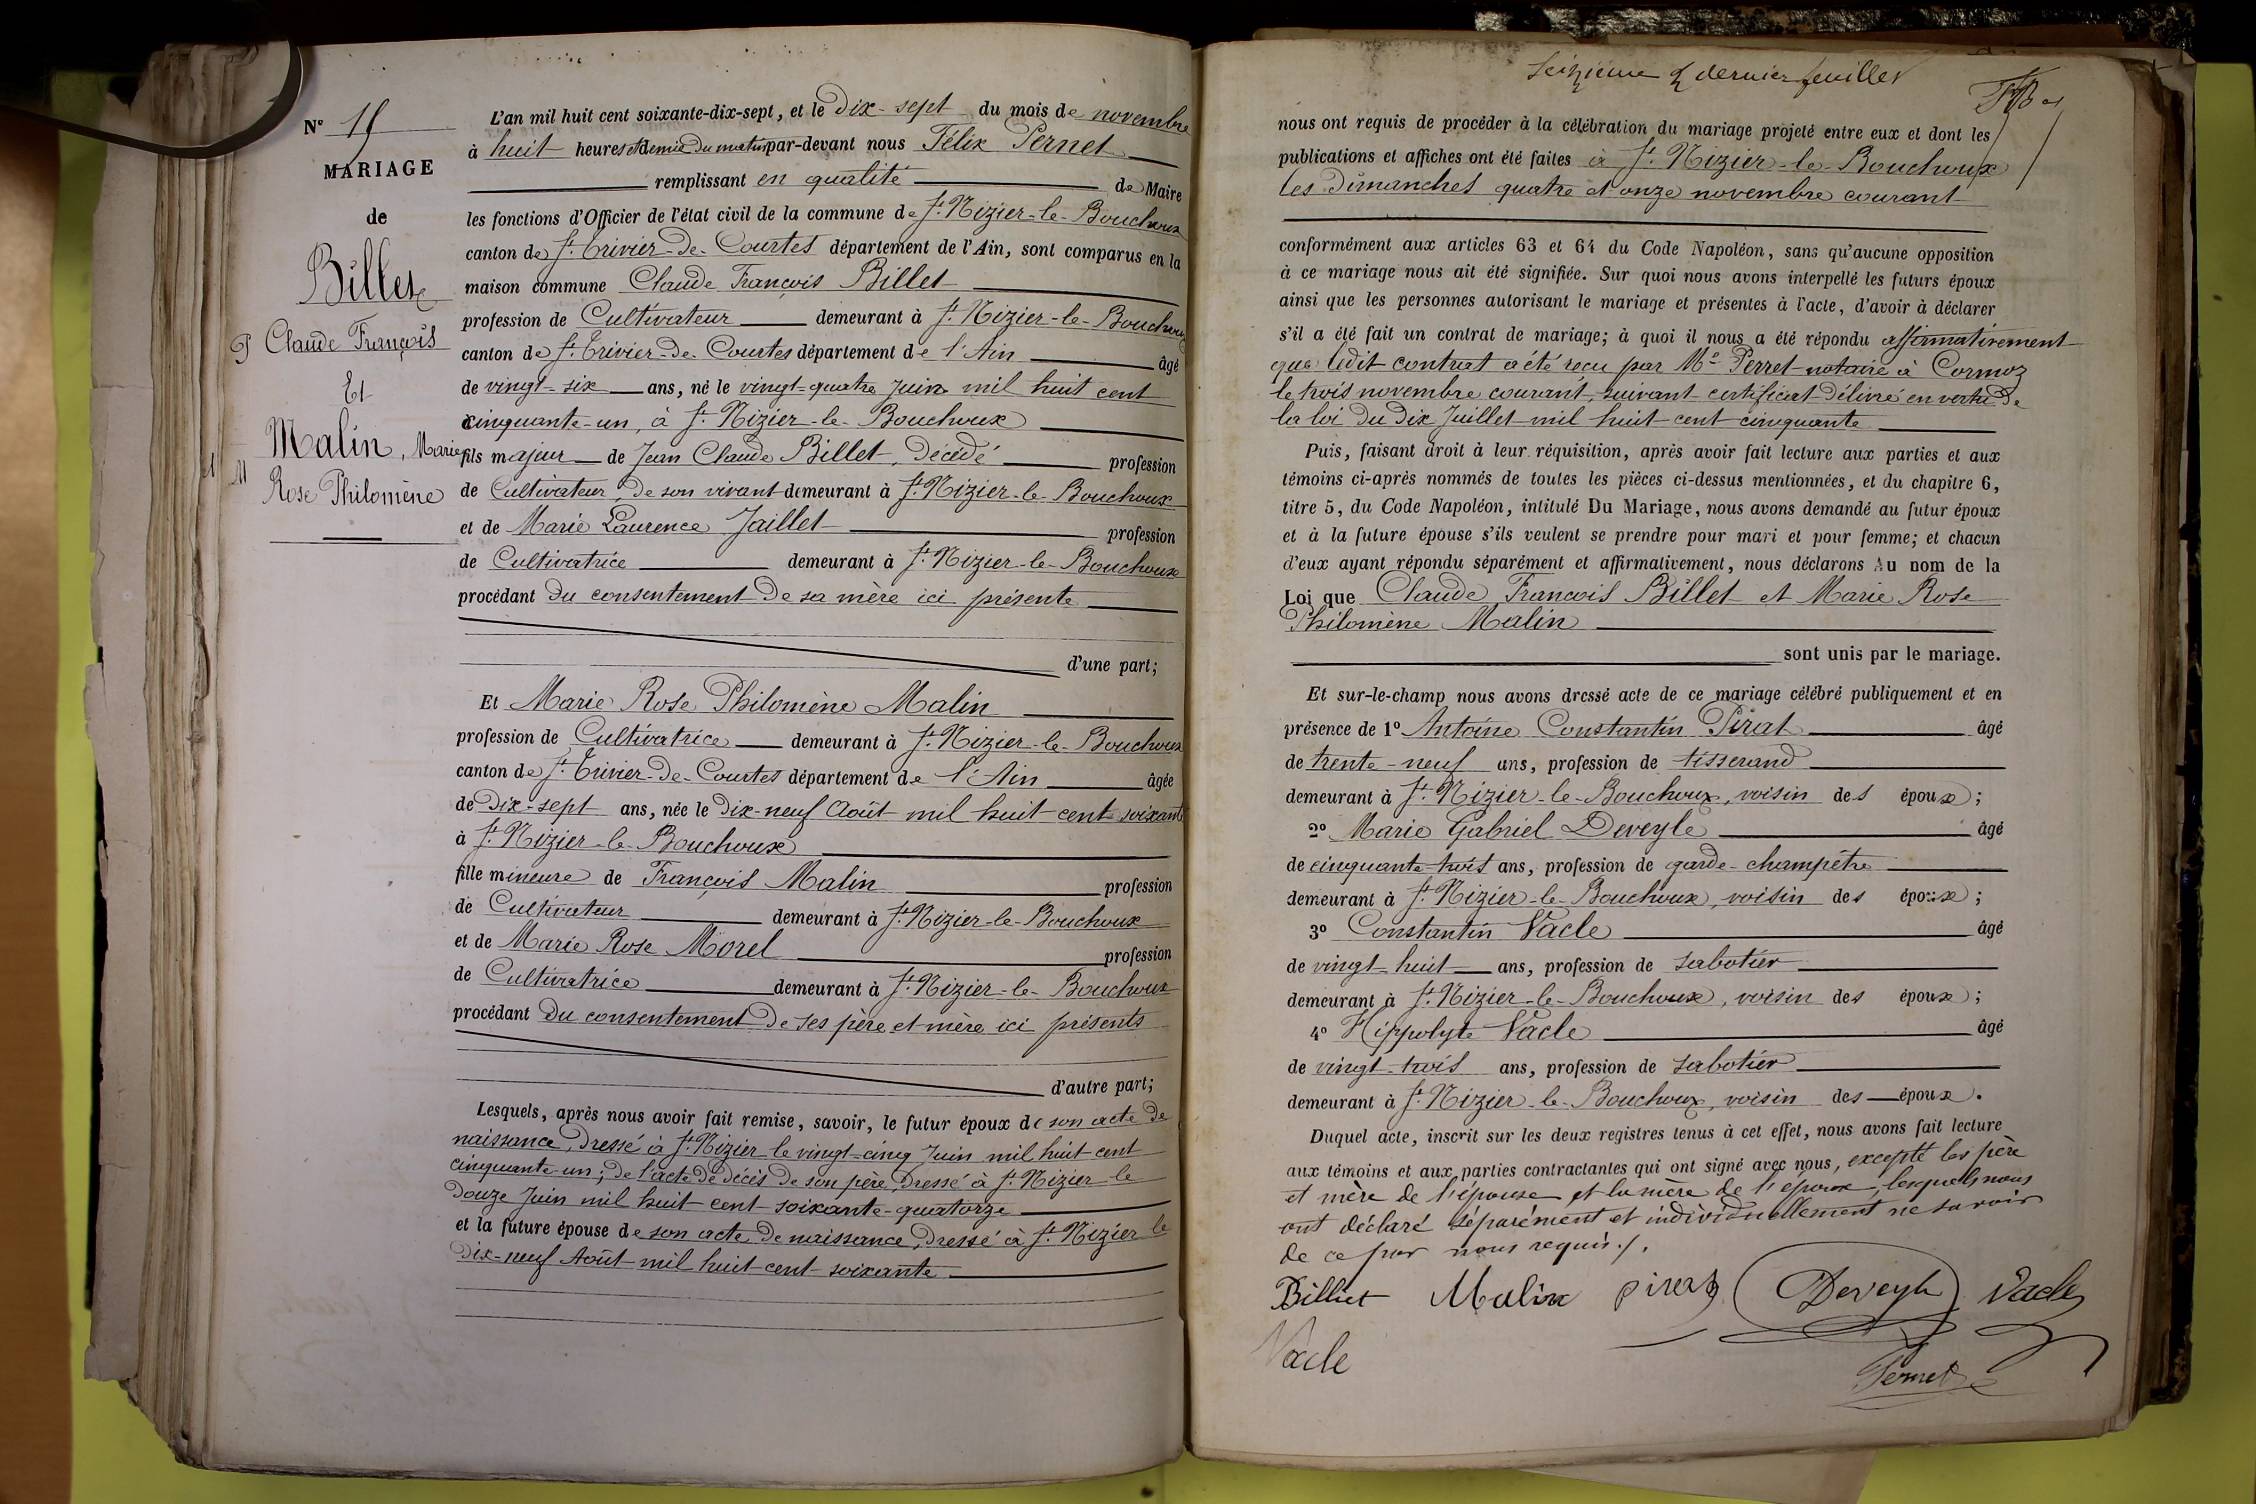 N° 15
MARIAGE
de
Billet
Claude François
Et
Malin, Marie
Rose Philomène
L'an mil huit cent soixante-dix-sept, et le dix-sept du mois de novembre
à huit heures et demie du matin par-devant nous Félix Pernet
remplissant en qualité de Maire
les fonctions d'Officier de l'état civil de la commune de St Nizier-le-Bouchoux
canton de St Trivier-de-Courtes département de l'Ain, sont comparus en la
maison commune Claude François Billet
profession de Cultivateur demeurant à St Nizier-le-Bouchoux
canton de St Trivier-de-Courtes département de l'Ain âgé
de vingt-six ans, né le vingt-quatre Juin mil huit cent
cinquante-un, à St Nizier-le-Bouchoux
fils majeur de Jean Claude Billet, décédé profession
de Cultivateur, de son vivant demeurant à St Nizier-le-Bouchoux
et de Marie Laurence Jaillet profession
de Cultivatrice demeurant à St Nizier-le-Bouchoux
procédant du consentement de sa mère ici présente
d'une part;
Et Marie Rose Philomène Malin
profession de Cultivatrice demeurant à St Nizier-le-Bouchoux
canton de St Trivier-de-Courtes département de l'Ain âgée
de dix-sept ans, née le dix-neuf Août mil huit cent soixante
à St Nizier-le-Bouchoux
fille mineure de François Malin profession
de Cultivateur demeurant à St Nizier-le-Bouchoux
et de Marie Rose Morel profession
de Cultivatrice demeurant à St Nizier-le-Bouchoux
procédant du consentement de ses père et mère ici présents
d'autre part;
Lesquels, après nous avoir fait remise, savoir, le futur époux de son acte de
naissance, dressé à St Nizier le vingt-cinq Juin mil huit cent
cinquante-un; de l'acte de décès de son père, dressé à St Nizier le
douze Juin mil huit cent soixante-quatorze
et la future épouse de son acte de naissance, dressé à St Nizier le
dix-neuf Août mil huit cent soixante
Seizième & dernier feuillet
nous ont requis de procéder à la célébration du mariage projeté entre eux et dont les
publications et affiches ont été faites à St Nizier-le-Bouchoux
les dimanches quatre et onze novembre courant
conformément aux articles 63 et 64 du Code Napoléon, sans qu'aucune opposition
à ce mariage nous ait été signifiée. Sur quoi nous avons interpellé les futurs époux
ainsi que les personnes autorisant le mariage et présentes à l'acte, d'avoir à déclarer
s'il a été fait un contrat de mariage; à quoi il nous a été répondu affirmativement
que ledit contrat a été reçu par Me Perret notaire à Cormoz
le trois novembre courant, suivant certificat délivré en vertu de
la loi du dix Juillet mil huit cent cinquante
Puis, faisant droit à leur réquisition, après avoir fait lecture aux parties et aux
témoins ci-après nommés de toutes les pièces ci-dessus mentionnées, et du chapitre 6,
titre 5, du Code Napoléon, intitulé Du Mariage, nous avons demandé au futur époux
et à la future épouse s'ils veulent se prendre pour mari et pour femme; et chacun
d'eux ayant répondu séparément et affirmativement, nous déclarons Au nom de la
Loi que Claude François Billet et Marie Rose
Philomène Malin
sont unis par le mariage.
Et sur-le-champ nous avons dressé acte de ce mariage célébré publiquement et en
présence de 1° Antoine Constantin Pirat âgé
de trente-neuf ans, profession de tisserand
demeurant à St Nizier-le-Bouchoux, voisin des époux;
2° Marie Gabriel Deveyle âgé
de cinquante-trois ans, profession de garde-champêtre
demeurant à St Nizier-le-Bouchoux, voisin des époux;
3° Constantin Vacle âgé
de vingt-huit ans, profession de sabotier
demeurant à St Nizier-le-Bouchoux, voisin des époux;
4° Hippolyte Vacle âgé
de vingt-trois ans, profession de sabotier
demeurant à St Nizier-le-Bouchoux, voisin des époux.
Duquel acte, inscrit sur les deux registres tenus à cet effet, nous avons fait lecture
aux témoins et aux parties contractantes qui ont signé avec nous, excepté les père
et mère de l'épouse et la mère de l'époux, lesquels nous
ont déclaré séparément et individuellement ne savoir
de ce par nous requis./.
Billiet Malin pirat Deveyle Vacle
Vacle
Pernet